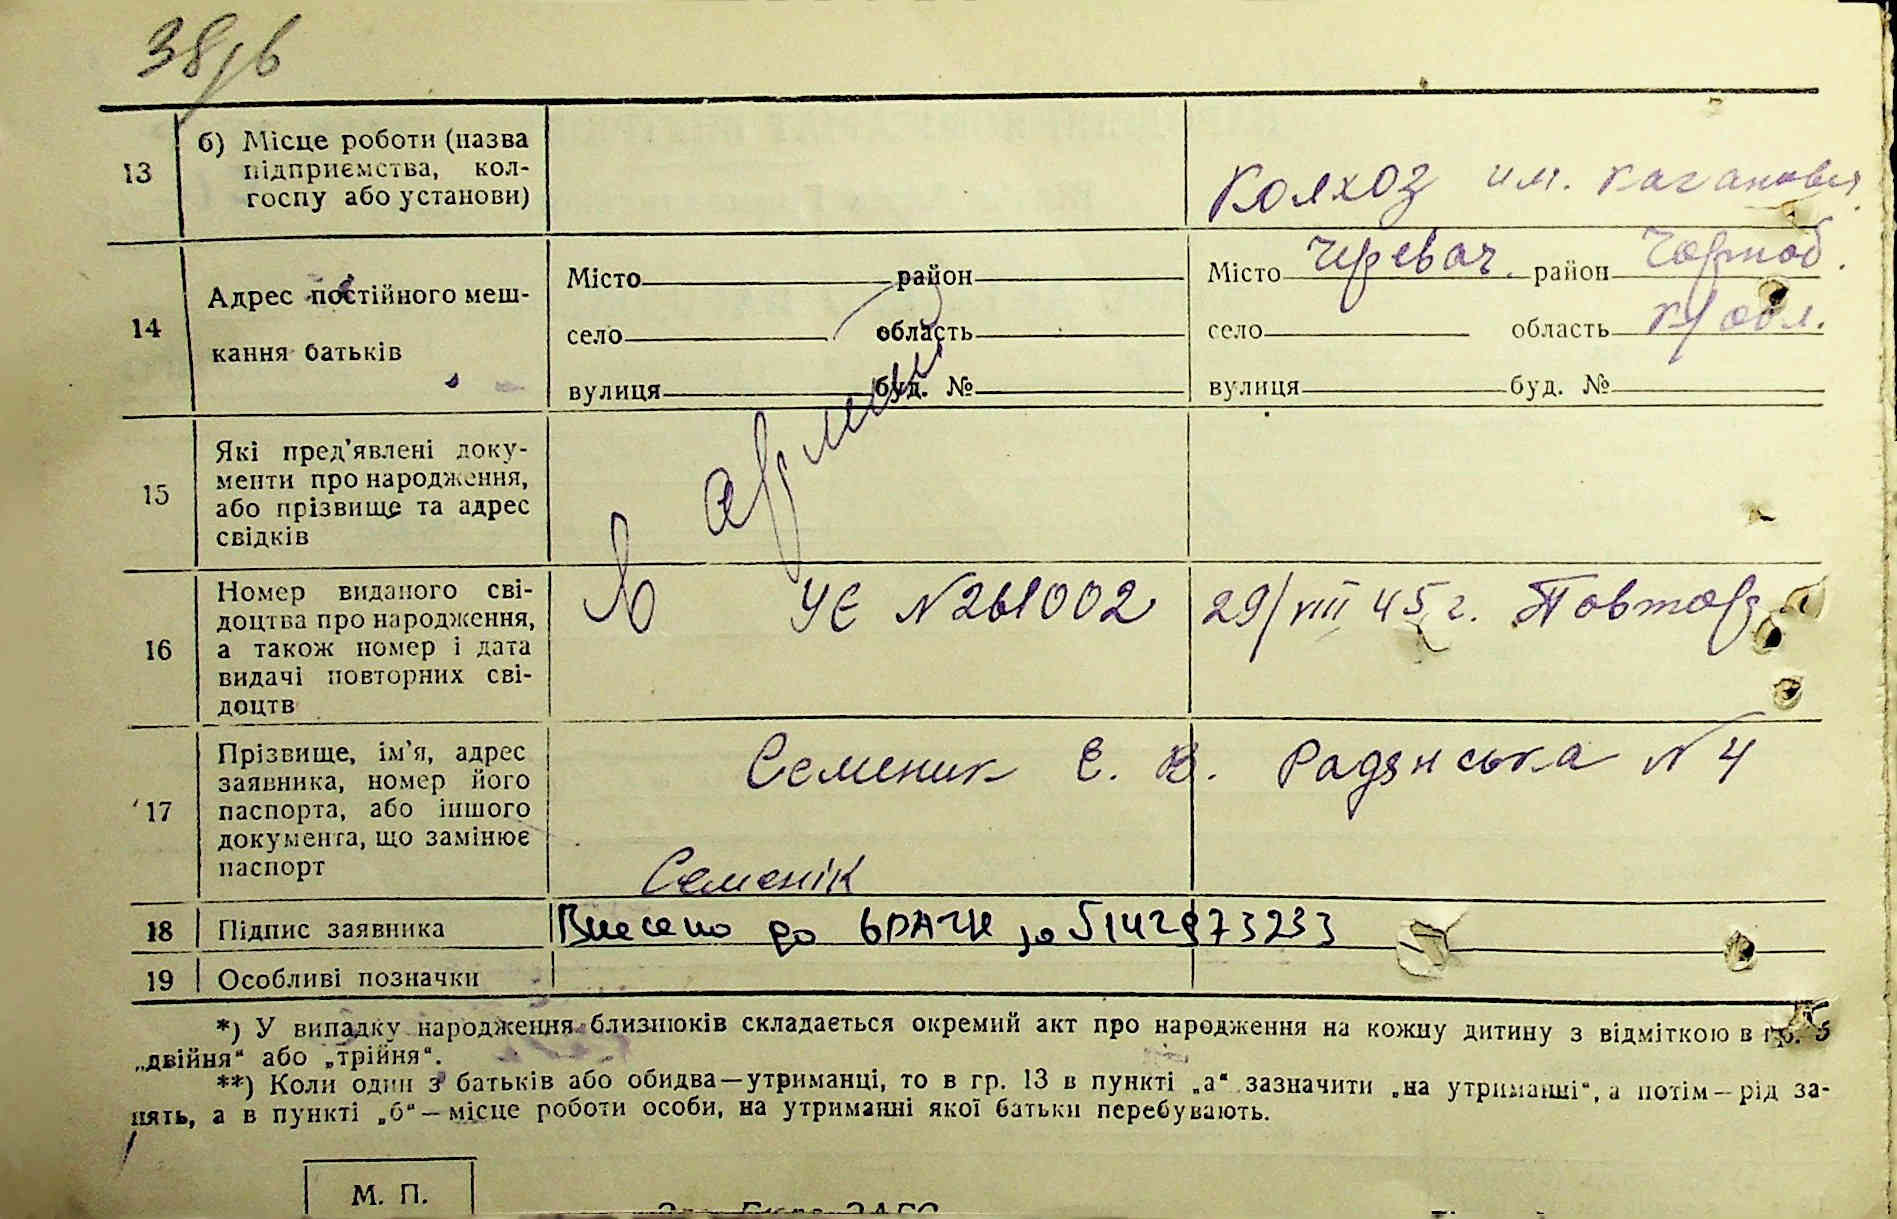 38/в
13 б) Місце роботи (назва
підприємства, кол-
госпу або установи)
Колхоз им. Кагановича
14 Адрес постійного меш-
кання батьків
Місто район
село область
вулиця буд. №
Місто Черевач. район Чорноб.
село область К/обл.
вулиця буд. №
В армии
15 Які пред'явлені доку-
менти про народження,
або прізвище та адрес
свідків
16 Номер виданого сві-
доцтва про народження,
а також номер і дата
видачі повторних сві-
доцтв
УЄ №261002 29/VIII 45 г. Повтор
17 Прізвище, ім'я, адрес
заявника, номер його
паспорта, або іншого
документа, що замінює
паспорт
Семеник Є. В. Радянська №4
Семенік
18 Підпис заявника
Внесено до ДРАЦС за
19 Особливі позначки
*) У випадку народження близнюків складається окремий акт про народження на кожну дитину з відміткою в гр. 5
„двійня“ або „трійня“.
**) Коли один з батьків або обидва—утриманці, то в гр. 13 в пункті „а“ зазначити „на утриманні“, а потім—рід за-
нять, а в пункті „б“—місце роботи особи, на утриманні якої батьки перебувають.
М. П.